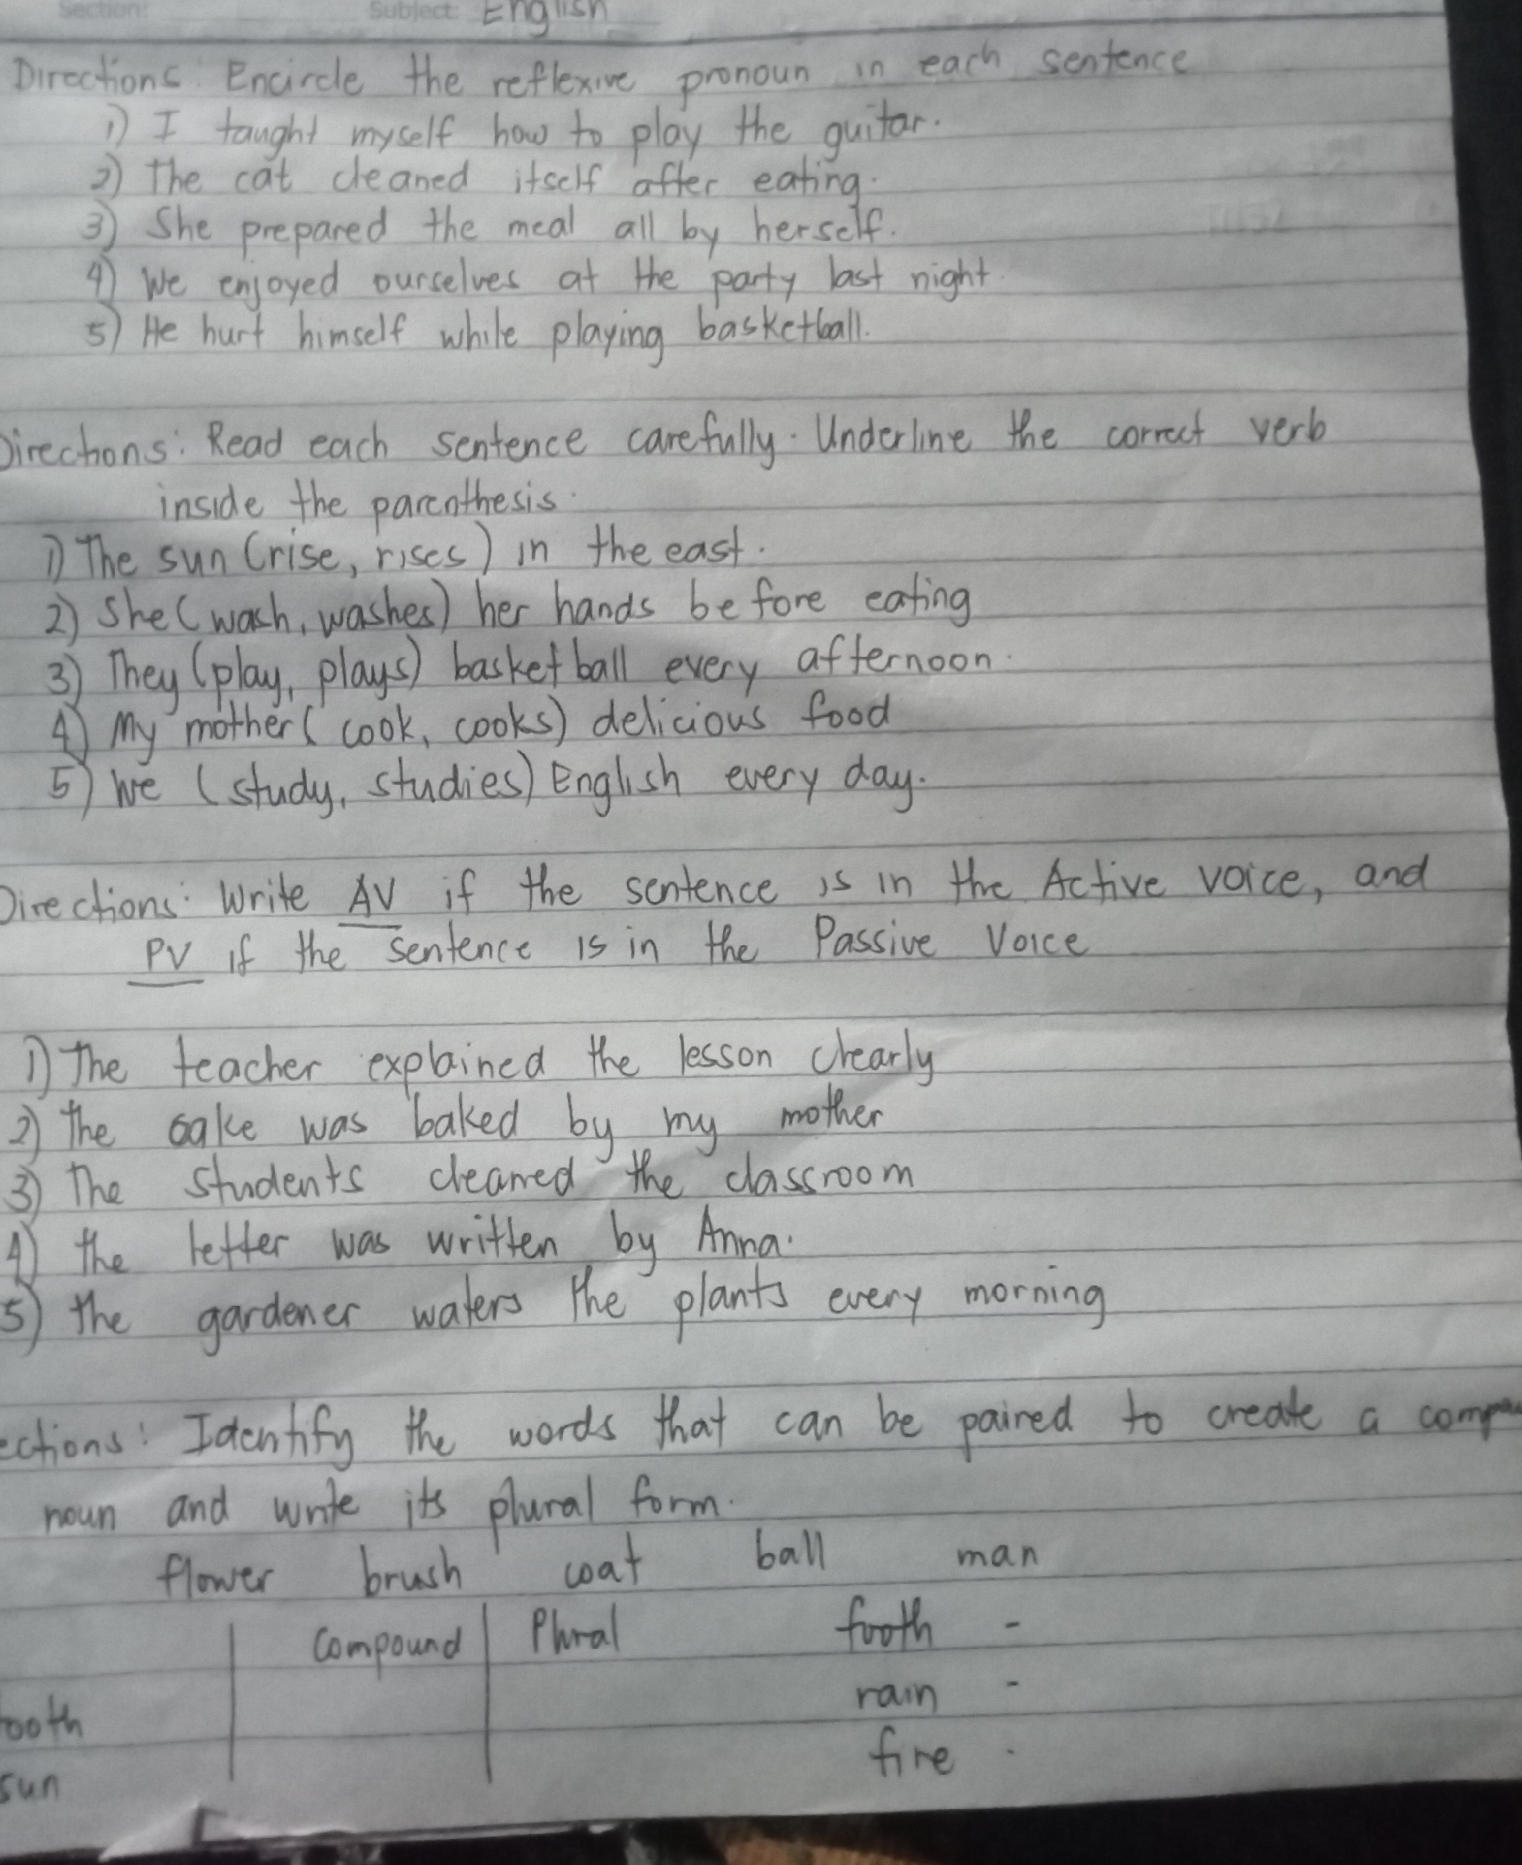 Section: Subject: English
Directions: Encircle the reflexive pronoun in each sentence
1) I taught myself how to play the guitar.
2) The cat cleaned itself after eating.
3) She prepared the meal all by herself.
4) We enjoyed ourselves at the party last night.
5) He hurt himself while playing basketball.
Directions: Read each sentence carefully. Underline the correct verb
inside the parenthesis.
1) The sun (rise, rises) in the east.
2) She (wash, washes) her hands before eating
3) They (play, plays) basketball every afternoon.
4) My mother (cook, cooks) delicious food
5) We (study, studies) English every day.
Directions: Write AV if the sentence is in the Active voice, and
PV if the sentence is in the Passive Voice
1) The teacher explained the lesson clearly
2) The cake was baked by my mother
3) The students cleaned the classroom
4) the letter was written by Anna.
5) the gardener waters the plants every morning
ections: Identify the words that can be paired to create a compou
noun and write its plural form.
flower brush coat ball man
Compound Plural footh -
rain -
tooth
fire -
sun